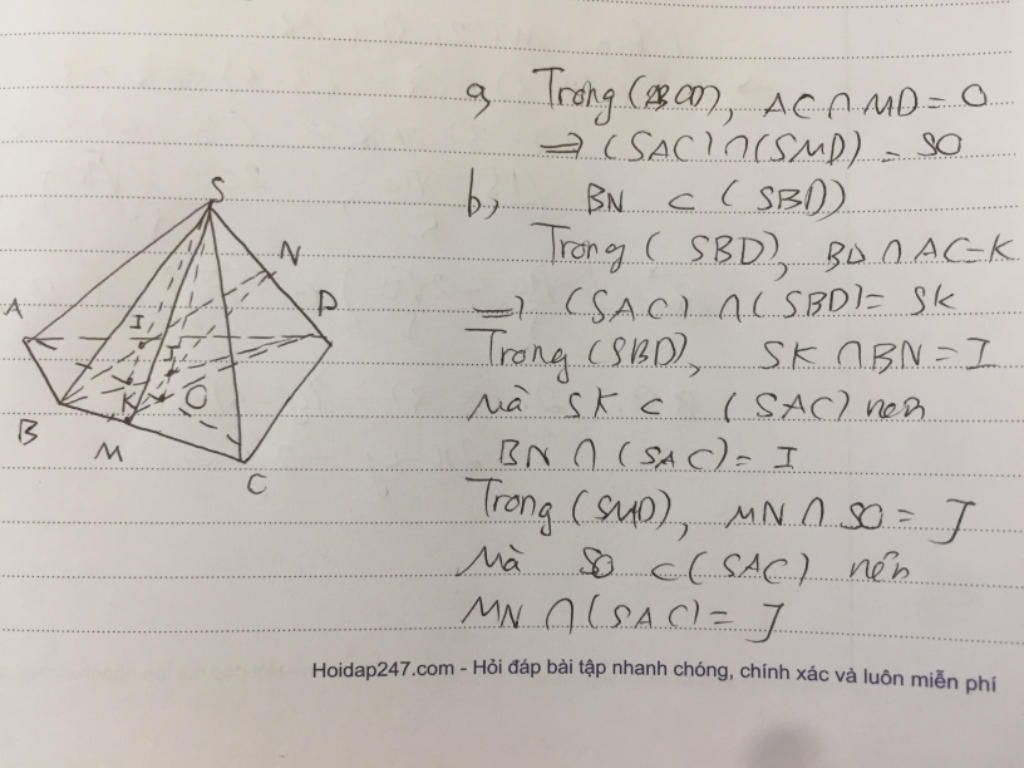 a, Trong (ABCD), AC ∩ MD = O
⇒ (SAC) ∩ (SMD) = SO
b, BN ⊂ (SBD)
Trong (SBD), BD ∩ AC = K
⇒ (SAC) ∩ (SBD) = SK
Trong (SBD), SK ∩ BN = I
Mà SK ⊂ (SAC) nên
BN ∩ (SAC) = I
Trong (SMD), MN ∩ SO = J
Mà SO ⊂ (SAC) nên
MN ∩ (SAC) = J
S
N
A
D
I
J
K
O
B
M
C
Hoidap247.com - Hỏi đáp bài tập nhanh chóng, chính xác và luôn miễn phí